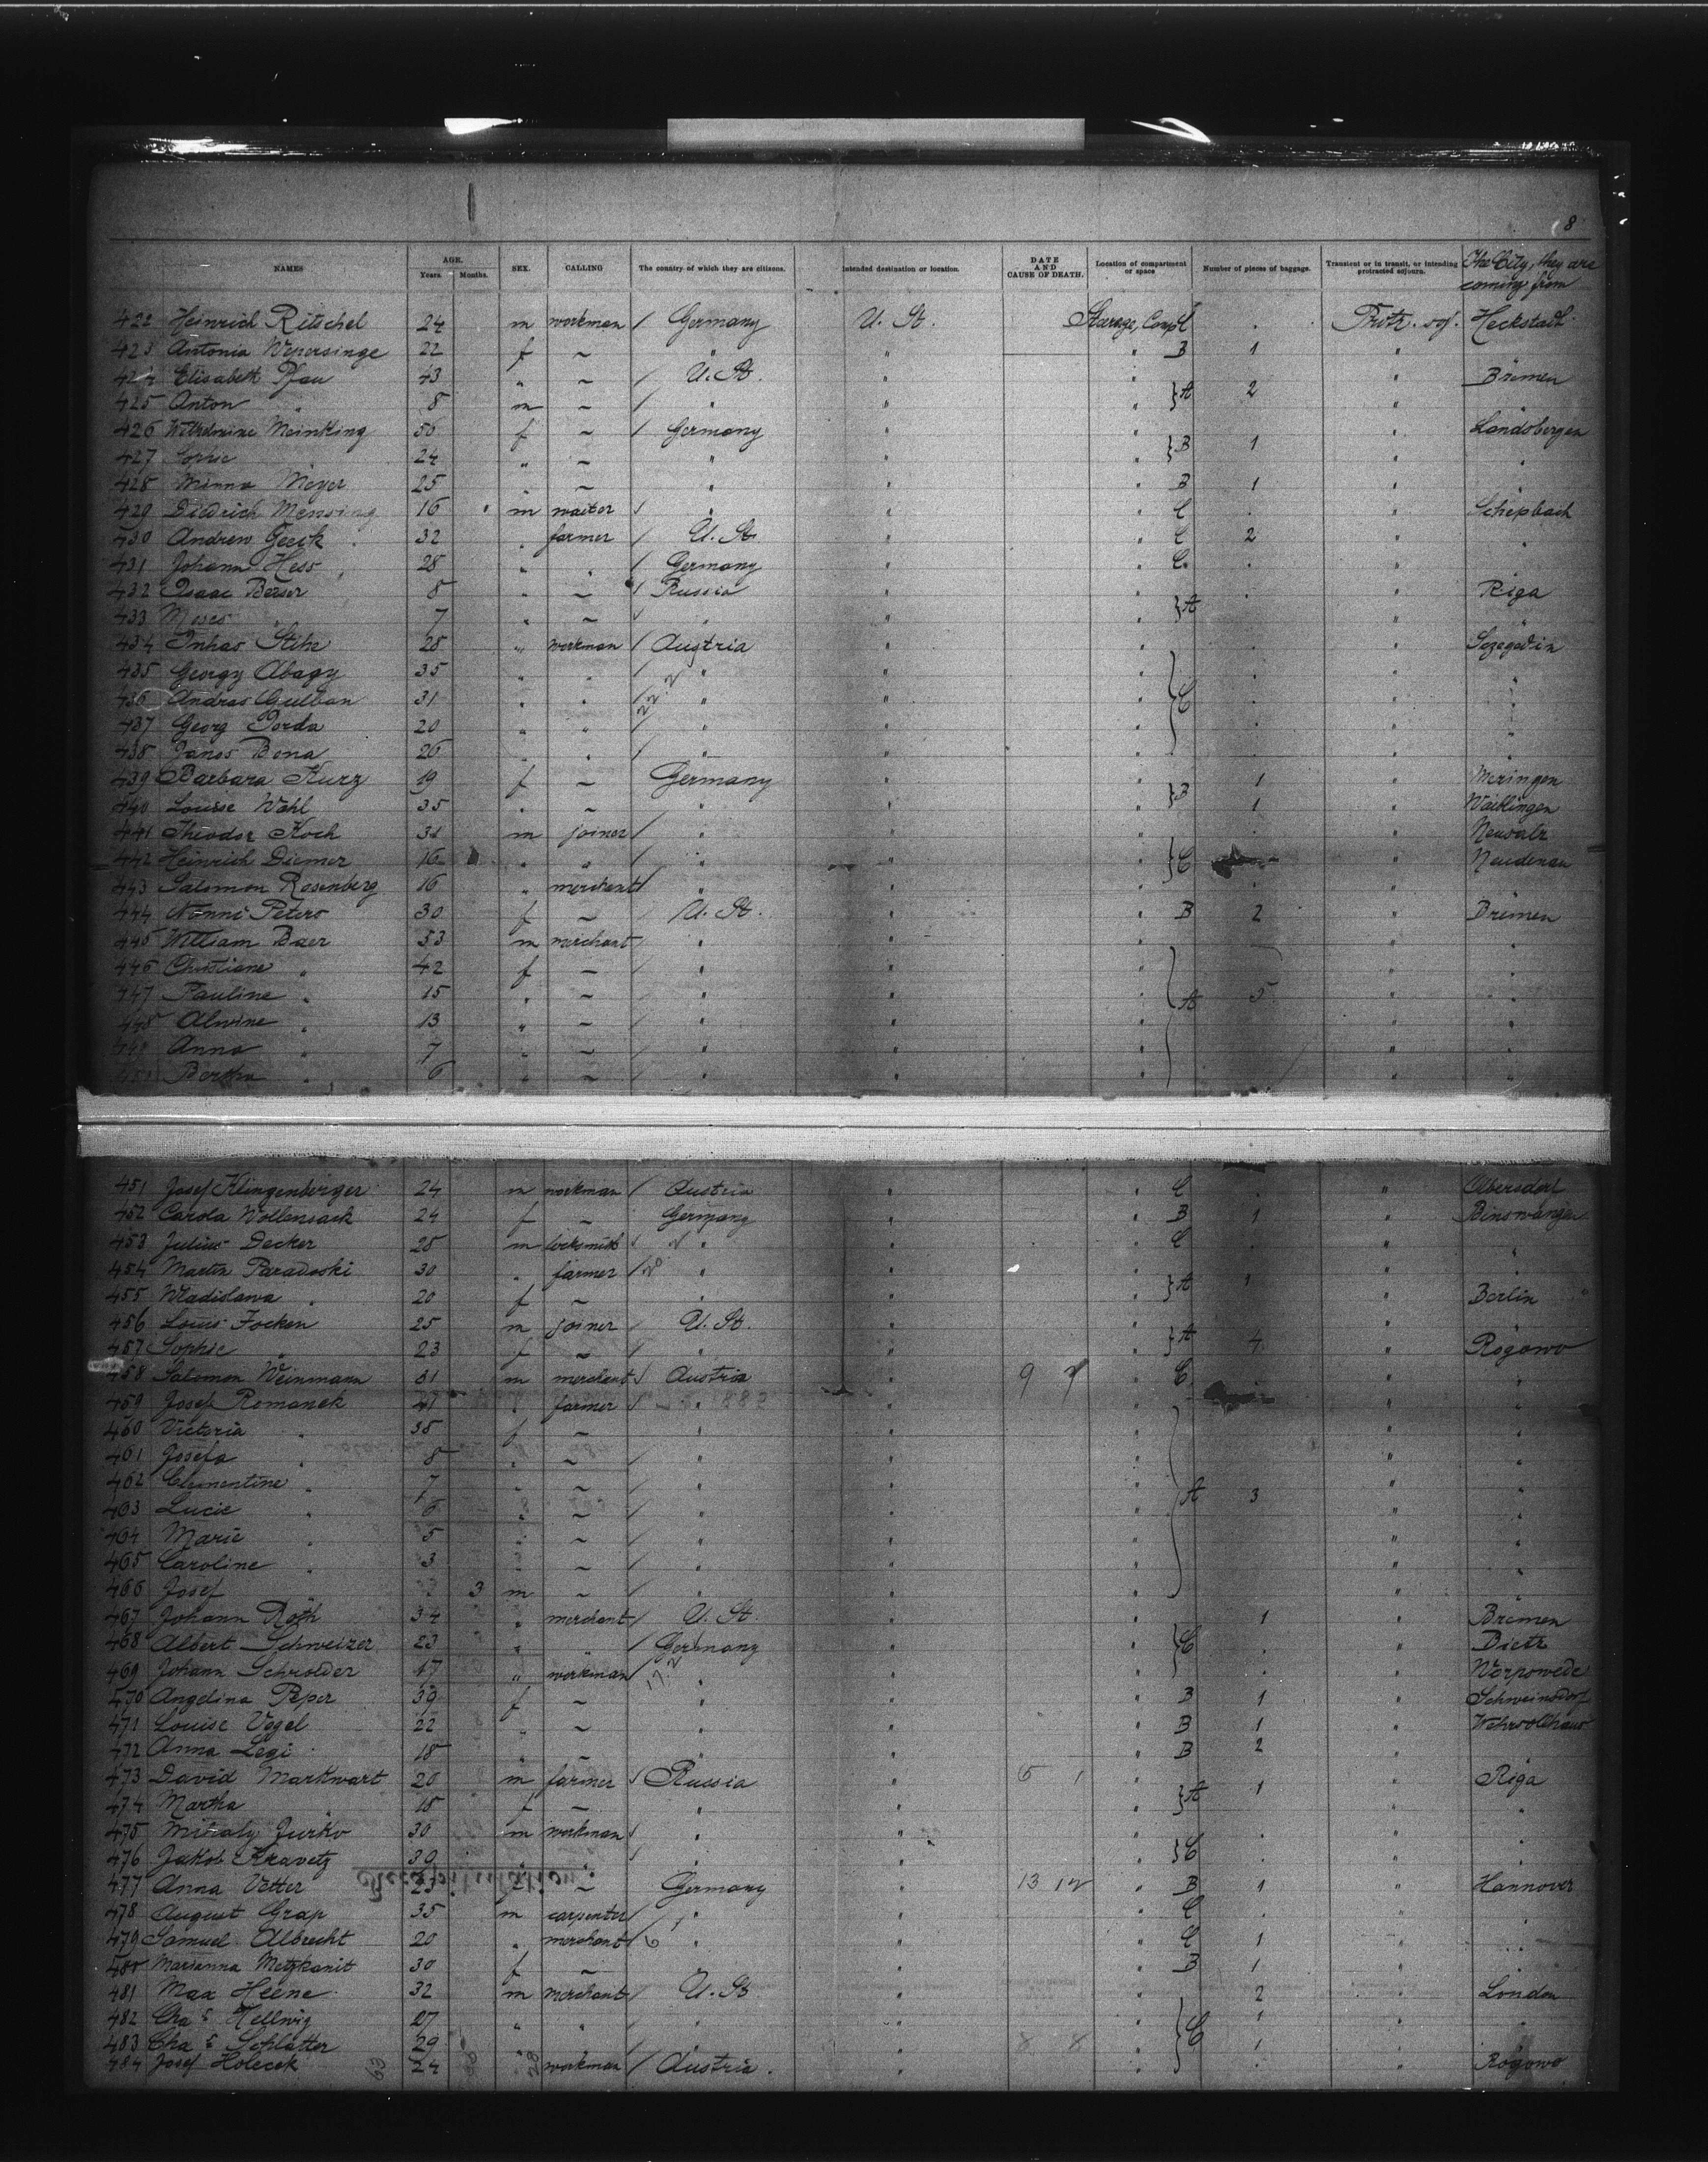 8
NAMES AGE. Years. Months. SEX. CALLING The country of which they are citizens. Intended destination or location. DATE AND CAUSE OF DEATH. Location of compartment or space Number of pieces of baggage. Transient or in transit, or intending protracted sojourn. The City, they are coming from
422 Heinrich Ritschel 24 m workman / Germany U. St. Steerage, Comp C . Protr. soj. Heckstadt
423 Antonia 22 f ~ " " " B 1 "
424 Elisabeth Pfau 43 " ~ / U. St. " " " Bremen
425 Anton " 8 m ~ / " " " } A 2 " "
426 Wilhelmine Meinking 50 f ~ / Germany " " " Landsbergen
427 Sophie " 24 " ~ " " " } B 1 " "
428 Minna Meyer 25 " ~ " " " B 1 " "
429 Diedrich Mensing 16 m waiter / " " " C . " Schepbach
430 Andrew Gecik 32 " farmer / U. St. " " C 2 " "
431 Johann Hess 28 " " / Germany " " C . " "
432 Isaac Berser 8 " ~ / Russia " " . " Riga
433 Moses " 7 " ~ / " " " } A . " "
434 Stihe 28 " workman / Austria " " . " Szegedin
435 Georgy Abagy 35 " " / " " " . " "
436 Andras Gulban 31 " " / " " " } C . " "
437 Georg Torda 20 " " / " " " . " "
438 Janos Bona 26 " " / " " " . " "
439 Barbara Kurz 19 f ~ Germany " " 1 " Meringen
440 Louise Wahl 35 " ~ " " " } B 1 " Waiblingen
441 Theodor Koch 31 m joiner / " " " . " Neusalz
442 Heinrich Diemer 16 " " / " " " } C " Neudenau
443 Salomon Rosenberg 16 " merchant / " " " . " "
444 Nanni Peters 30 f ~ / U. St. " " B 2 " Bremen
445 William Baer 53 m merchant / " " " " "
446 Christiane " 42 f ~ / " " " " "
447 Pauline " 15 " ~ / " " " } A 5 " "
448 Alwine " 13 " ~ / " " " " "
449 Anna " 7 " ~ / " " " " "
450 Bertha " 6 " ~ / " " " " "
451 Josef Klingenberger 24 m workman / Austria " " C . " Olbersdorf
452 Carola Wollensack 24 f ~ Germany " " B 1 " Binswangen
453 Julius Decker 28 m locksmith / " " " C . " "
454 Martin Paradoski 30 " farmer / " " " " "
455 Wladislawa " 20 f ~ " " " } A 1 " Berlin
456 Louis Focken 25 m joiner / U. St. " " " "
457 Sophie " 23 f ~ / " " " } A 4 " Rogowo
458 Salomon Weinmann 31 m merchant / Austria " 9 " C . " "
459 Josef Romanek 41 " farmer / " " " " "
460 Victoria " 35 f ~ " " " " "
461 Josefa " 8 " ~ / " " " " "
462 Clementine " 7 " ~ / " " " " "
463 Lucie " 6 " ~ / " " " } A 3 " "
464 Marie " 5 " ~ / " " " " "
465 Caroline " 3 " ~ / " " " " "
466 Josef " 3 m ~ / " " " " "
467 Johann Roth 34 " merchant / U. St. " " 1 " Bremen
468 Albert Schweizer 23 " " / Germany " " } C . " Dietz
469 Johann Schroeder 17 " workman / " " " . " Worpswede
470 Angelina Peper 39 f ~ " " " B 1 " Schweinsdorf
471 Louise Vogel 22 " ~ " " " B 1 "
472 Anna Legi 18 " ~ " " " B 2 " "
473 David Markwart 20 m farmer / Russia " 6 1 " " Riga
474 Martha " 18 f ~ " " " } A 1 " "
475 Mihaly Jurko 30 m workman / " " " . " "
476 Jakob Kravetz 30 " " / " " " } C . " "
Recapitulation:
477 Anna Vetter 23 f ~ Germany " 13 12 " B 1 " Hannover
478 August Grap 35 m carpenter / " " " C . " "
479 Samuel Albrecht 20 " merchant / " " " C 1 " "
480 Marianna Metzkanit 30 f ~ " " " B 1 " "
481 Max Heene 32 m merchant / U. St. " " 2 " London
482 Chas Hellwig 27 " " / " " " 1 " "
483 Chas Schlatter 29 " " / " " 8 8 " } C 1 " "
484 Josef Holecek 24 " workman / Austria . " " . " Rogowo